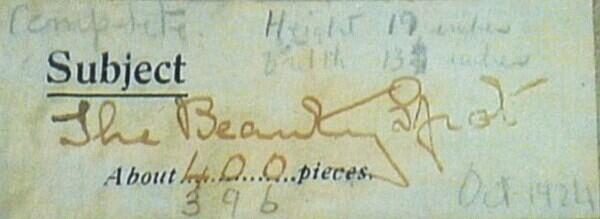 Complete. Height 19 inches
Width 13½ inches
Subject
The Beauty Spot
About 400 pieces.
396
Oct 1924